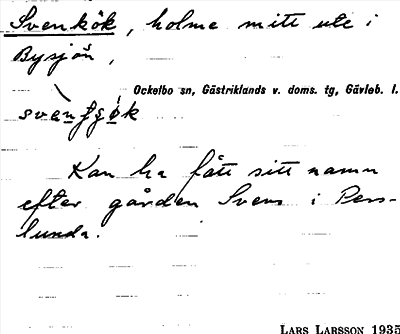 Svenkök, holme mitt ute i
Bysjön,
Ockelbo sn, Gästriklands v. doms. tg, Gävleb. l.
Kan ha fått sitt namn
efter gården Svens i Pers-
lunda.
LARS LARSSON 1935